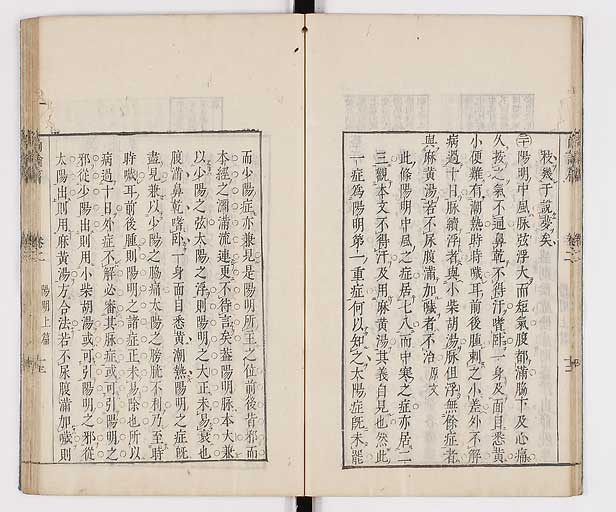 枝幾于說夢矣
二十陽明中風脉弦浮大而短氣腹都滿脇下及心痛
久按之氣不通鼻乾不得汗嗜臥一身及面目悉黃
小便難有潮熱時時噦耳前後腫刺之小差外不解
病過十日脉續浮者與小柴胡湯脉但浮無餘症者
與麻黃湯若不尿腹滿加噦者不治 原文
此條陽明中風之症居七八而中寒之症亦居二
三觀本文不得汗及用麻黃湯其義自見也然此
一症為陽明第一重症何以知之太陽症既未罷
而少陽症亦兼見是陽明所主之位前後皆邪而
本經之瀰滿流連更不待言矣葢陽明脉本大兼
以少陽之弦太陽之浮則陽明之大正未易衰也
腹滿鼻乾嗜臥一身面目悉黃潮熱陽明之症既
盡見兼以少陽之脇痛太陽之膀胱不利乃至時
時噦耳前後腫則陽明之諸症正未易除也所以
病過十日外症不解必審其脉症或可引陽明之
邪從少陽出則用小柴胡湯或可引陽明之邪從
太陽出則用麻黃湯方合法若不尿腹滿加噦則
卷二 陽明上篇